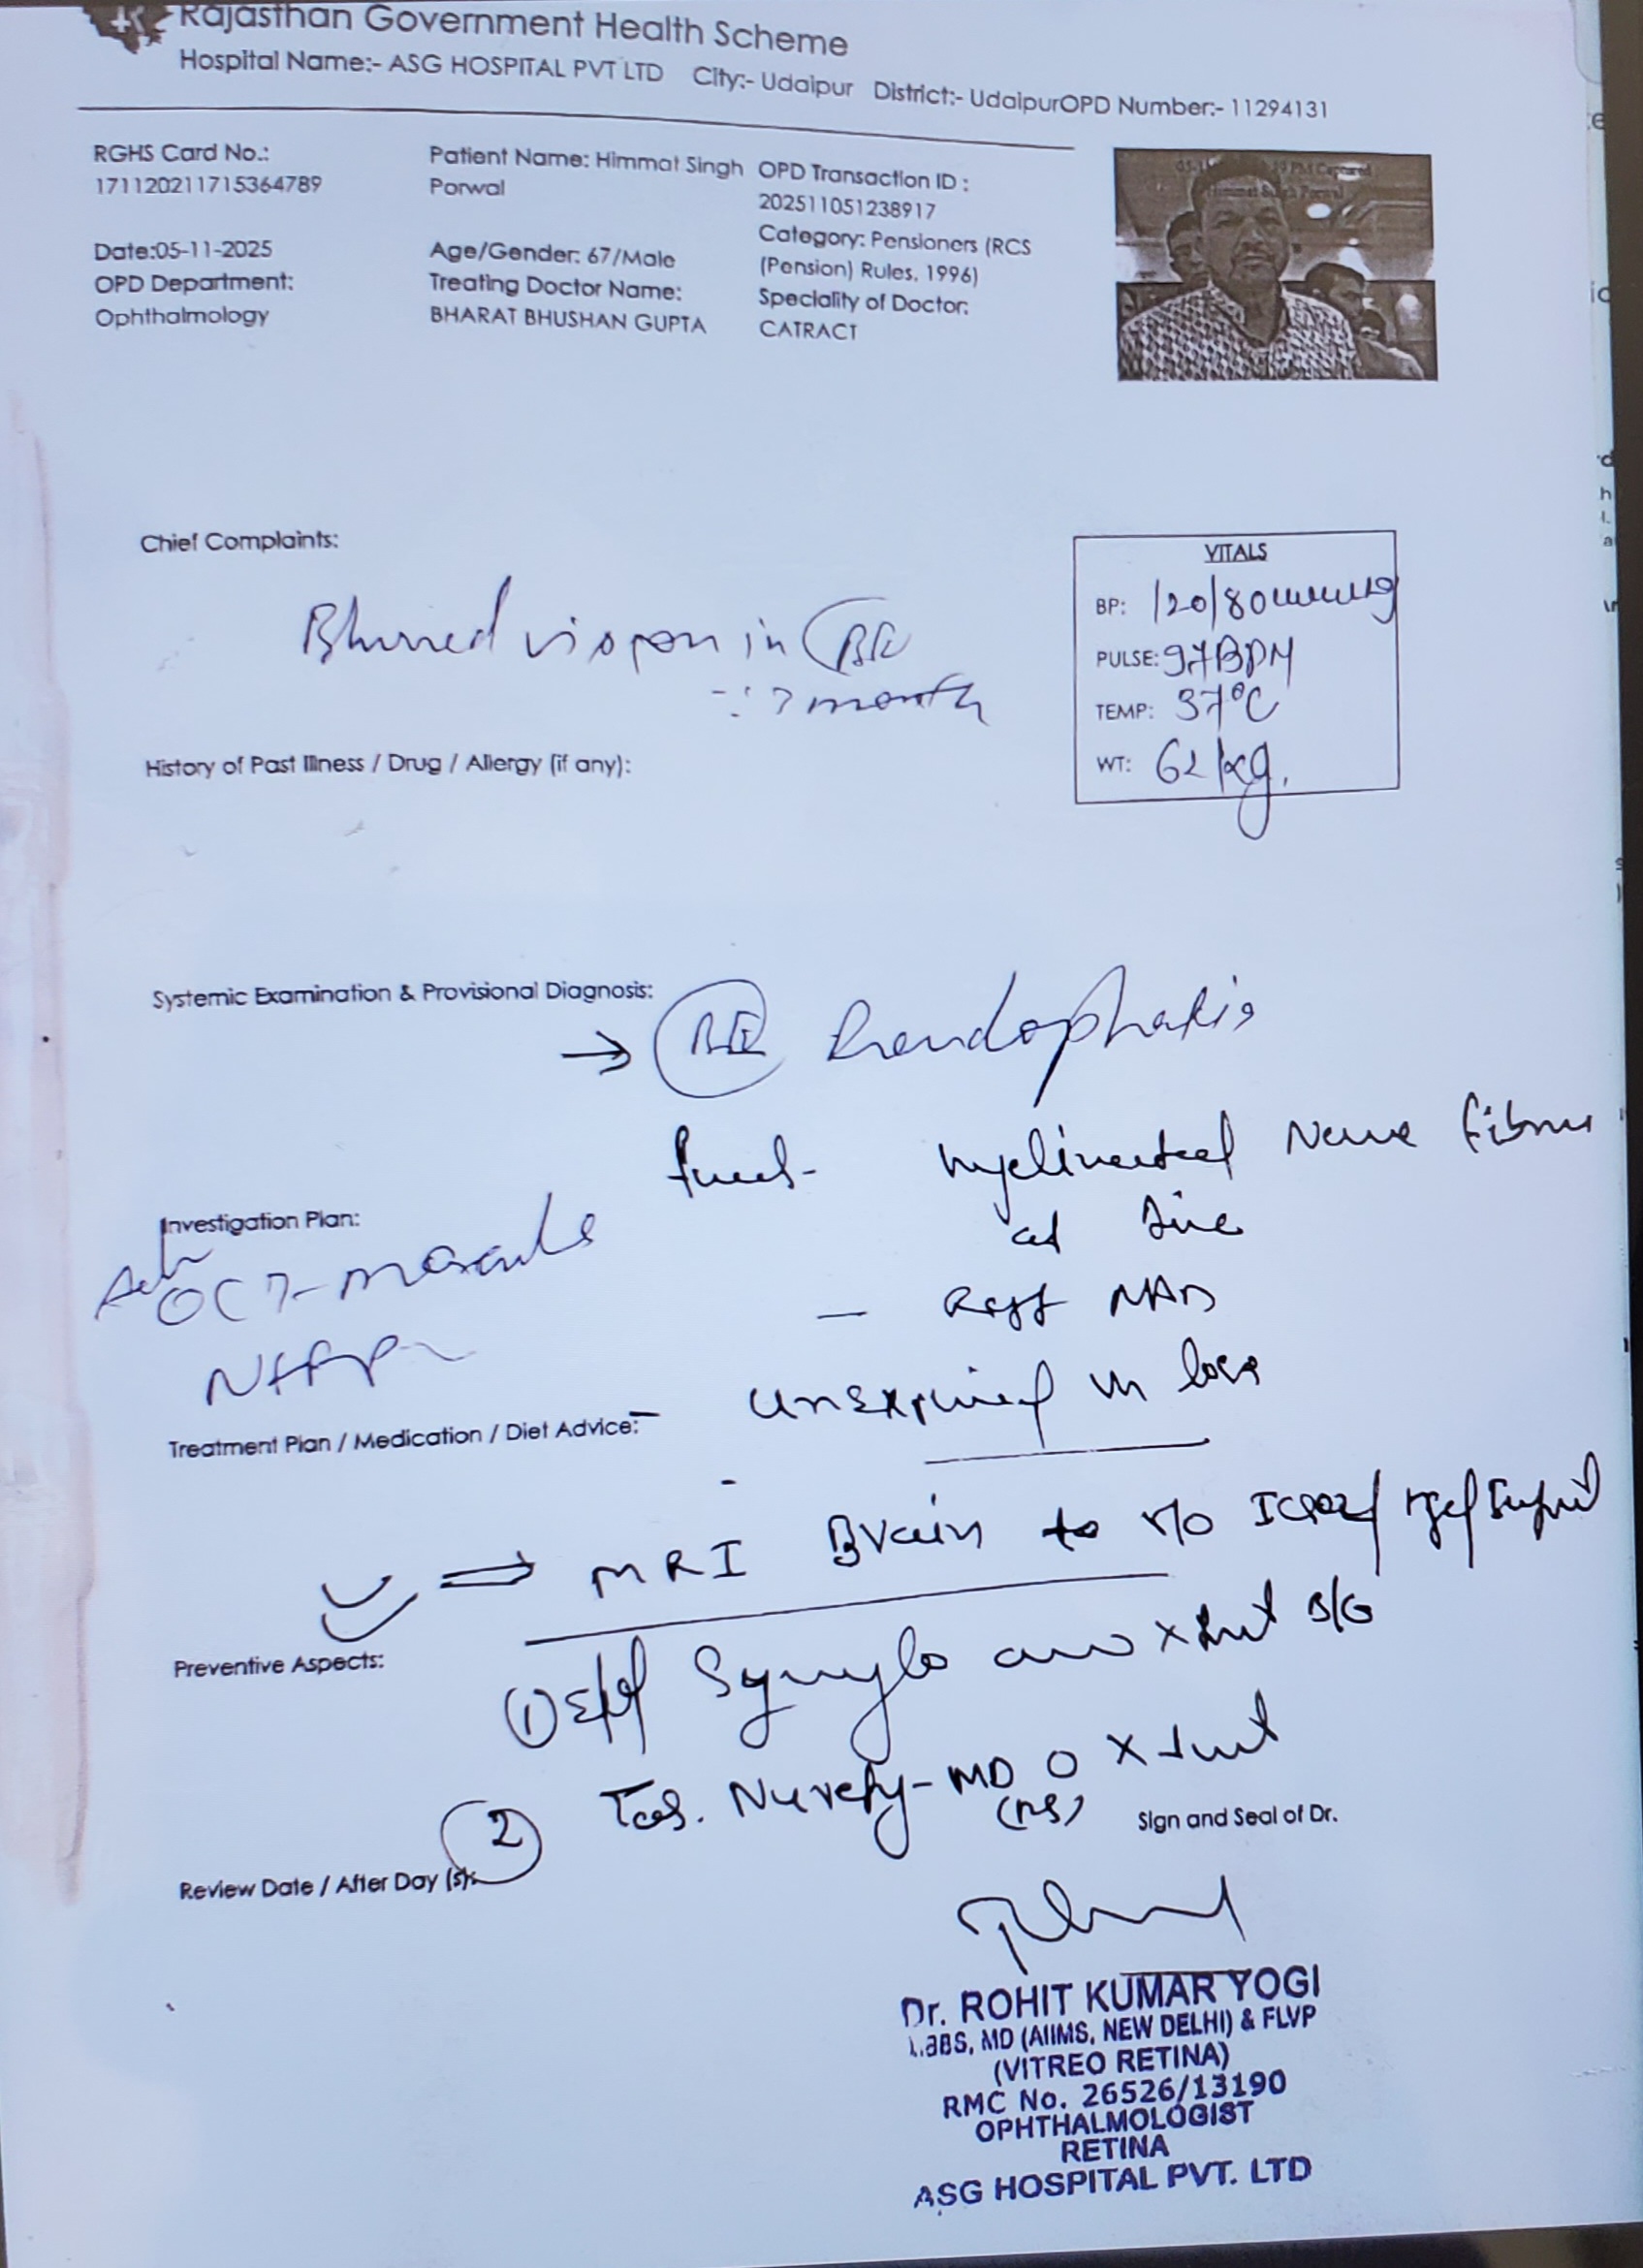 Rajasthan Government Health Scheme
Hospital Name:- ASG HOSPITAL PVT LTD City:- Udaipur District:- UdaipurOPD Number:- 11294131
RGHS Card No.:
171120211715364789
Date:05-11-2025
OPD Department:
Ophthalmology
Patient Name: Himmat Singh
Porwal
Age/Gender: 67/Male
Treating Doctor Name:
BHARAT BHUSHAN GUPTA
OPD Transaction ID :
202511051238917
Category: Pensioners (RCS
(Pension) Rules, 1996)
Speciality of Doctor:
CATRACT
Chief Complaints:
Blurred vision in BE
month
VITALS
BP: 120/80mmHg
PULSE: 97BPM
TEMP: 37°C
WT: 62kg.
History of Past Illness / Drug / Allergy (if any):
Systemic Examination & Provisional Diagnosis:
→ BE Pseudophakia
Myelinated Nerve fibres
at
Investigation Plan:
OCT-macula
— Rest NAD
Treatment Plan / Medication / Diet Advice:
- unexplained loss
⇒ MRI Brain to r/o
Preventive Aspects:
① E/d
② Tab. Nurefy-MD O X
Sign and Seal of Dr.
Review Date / After Day (s):
Dr. ROHIT KUMAR YOGI
MD (AIIMS, NEW DELHI) & FLVP
(VITREO RETINA)
RMC No. 26526/13190
OPHTHALMOLOGIST
RETINA
ASG HOSPITAL PVT. LTD